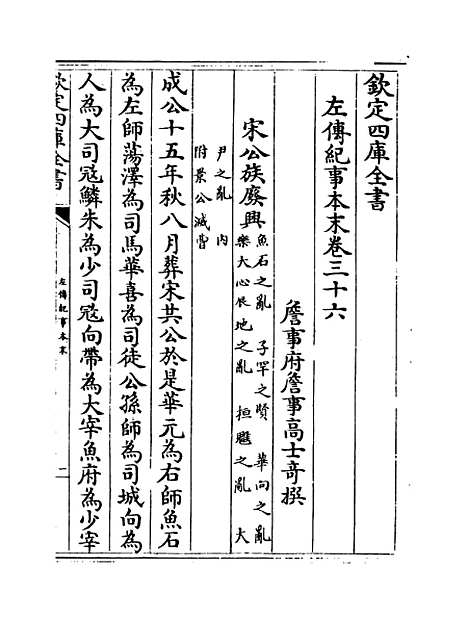 欽定四庫全書
左傳紀事本末卷三十六
詹事府詹事高士奇撰
宋公族廢興魚石之亂 子罕之賢 華向之亂
樂大心辰地之亂 桓魋之亂 大
尹之亂 内
附景公滅曹
成公十五年秋八月葬宋共公於是華元為右師魚石
為左師蕩澤為司馬華喜為司徒公孫師為司城向為
人為大司寇鱗朱為少司寇向帶為大宰魚府為少宰
欽定四庫全書
左傳紀事本末